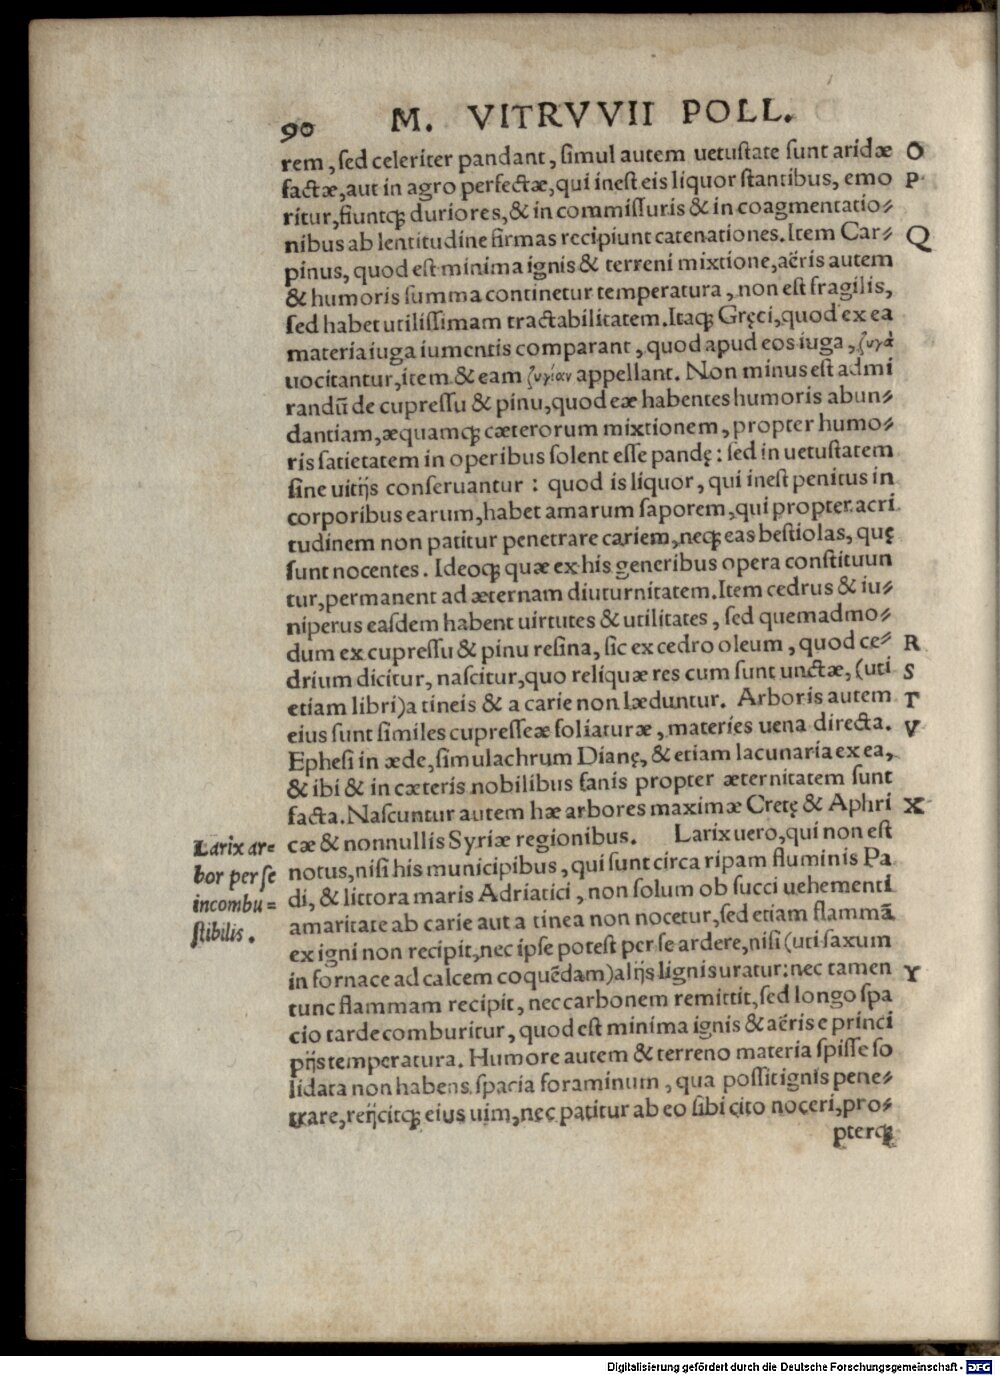 90 M. VITRVVII POLL.
rem, sed celeriter pandant, simul autem uetustate sunt aridæ O
factæ, aut in agro perfectæ, qui inest eis liquor stantibus, emo P
ritur, fiuntq́; duriores, & in commissuris & in coagmentatio⸗
nibus ab lentitudine firmas recipiunt catenationes. Item Car⸗ Q
pinus, quod est minima ignis & terreni mixtione, aëris autem
& humoris summa continetur temperatura, non est fragilis,
sed habet utilissimam tractabilitatem. Itaq; Gręci, quod ex ea
materia iuga iumentis comparant, quod apud eos iuga, ζυγὰ
uocitantur, item & eam ζυγίαν appellant. Non minus est admi
randũ de cupressu & pinu, quod eæ habentes humoris abun⸗
dantiam, æquamq́; cæterorum mixtionem, propter humo⸗
ris satietatem in operibus solent esse pandę: sed in uetustatem
sine uitijs conseruantur: quod is liquor, qui inest penitus in
corporibus earum, habet amarum saporem, qui propter acri
tudinem non patitur penetrare cariem, neq; eas bestiolas, quę
sunt nocentes. Ideoq́; quæ ex his generibus opera constituun
tur, permanent ad æternam diuturnitatem. Item cedrus & iu⸗
niperus easdem habent uirtutes & utilitates, sed quemadmo⸗
dum ex cupressu & pinu resina, sic ex cedro oleum, quod ce⸗ R
drium dicitur, nascitur, quo reliquæ res cum sunt unctæ, (uti S
etiam libri) a tineis & a carie non læduntur. Arboris autem T
eius sunt similes cupresseæ foliaturæ, materies uena directa. V
Ephesi in æde, simulachrum Dianę, & etiam lacunaria ex ea,
& ibi & in cæteris nobilibus fanis propter æternitatem sunt
facta. Nascuntur autem hæ arbores maximæ Cretę & Aphri X
cæ & nonnullis Syriæ regionibus. Larix uero, qui non est
notus, nisi his municipibus, qui sunt circa ripam fluminis Pa
di, & littora maris Adriatici, non solum ob succi uehementi
amaritate ab carie aut a tinea non nocetur, sed etiam flammã
ex igni non recipit, nec ipse potest per se ardere, nisi (uti saxum
in fornace ad calcem coquẽdam) alijs lignis uratur: nec tamen Y
tunc flammam recipit, nec carbonem remittit, sed longo spa
cio tarde comburitur, quod est minima ignis & aëris e princi
pijs temperatura. Humore autem & terreno materia spisse so
lidata non habens spacia foraminum, qua possit ignis pene⸗
trare, reijcitq́; eius uim, nec patitur ab eo sibi cito noceri, pro⸗
pterq́;
Larix ar=
bor per se
incombu=
stibilis.
Digitalisierung gefördert durch die Deutsche Forschungsgemeinschaft - DFG